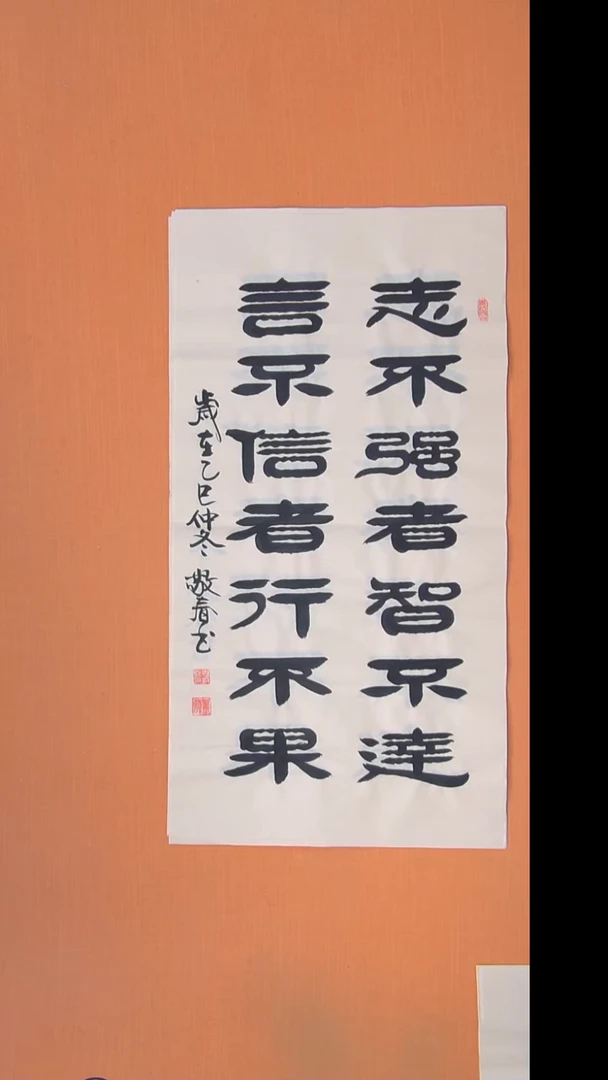 志不强者智不達
言不信者行不果
歳在乙巳仲冬 敬春书